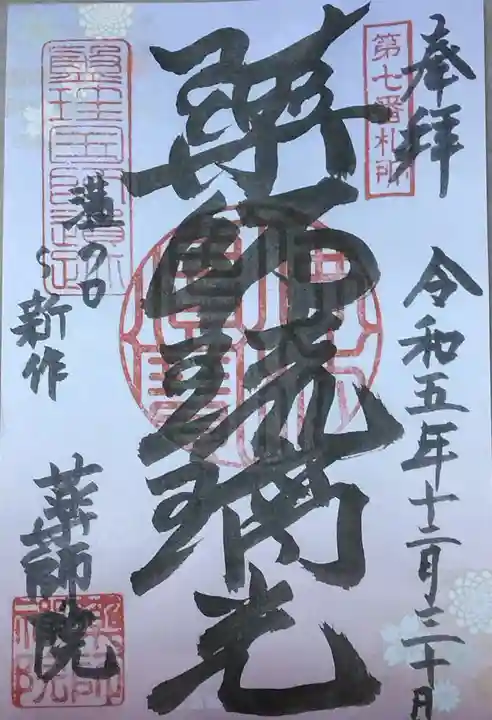 奉拝
第七番札所
令和五年十二月三十日
薬師瑠璃光
溝の口
新作
薬師院
薬師院